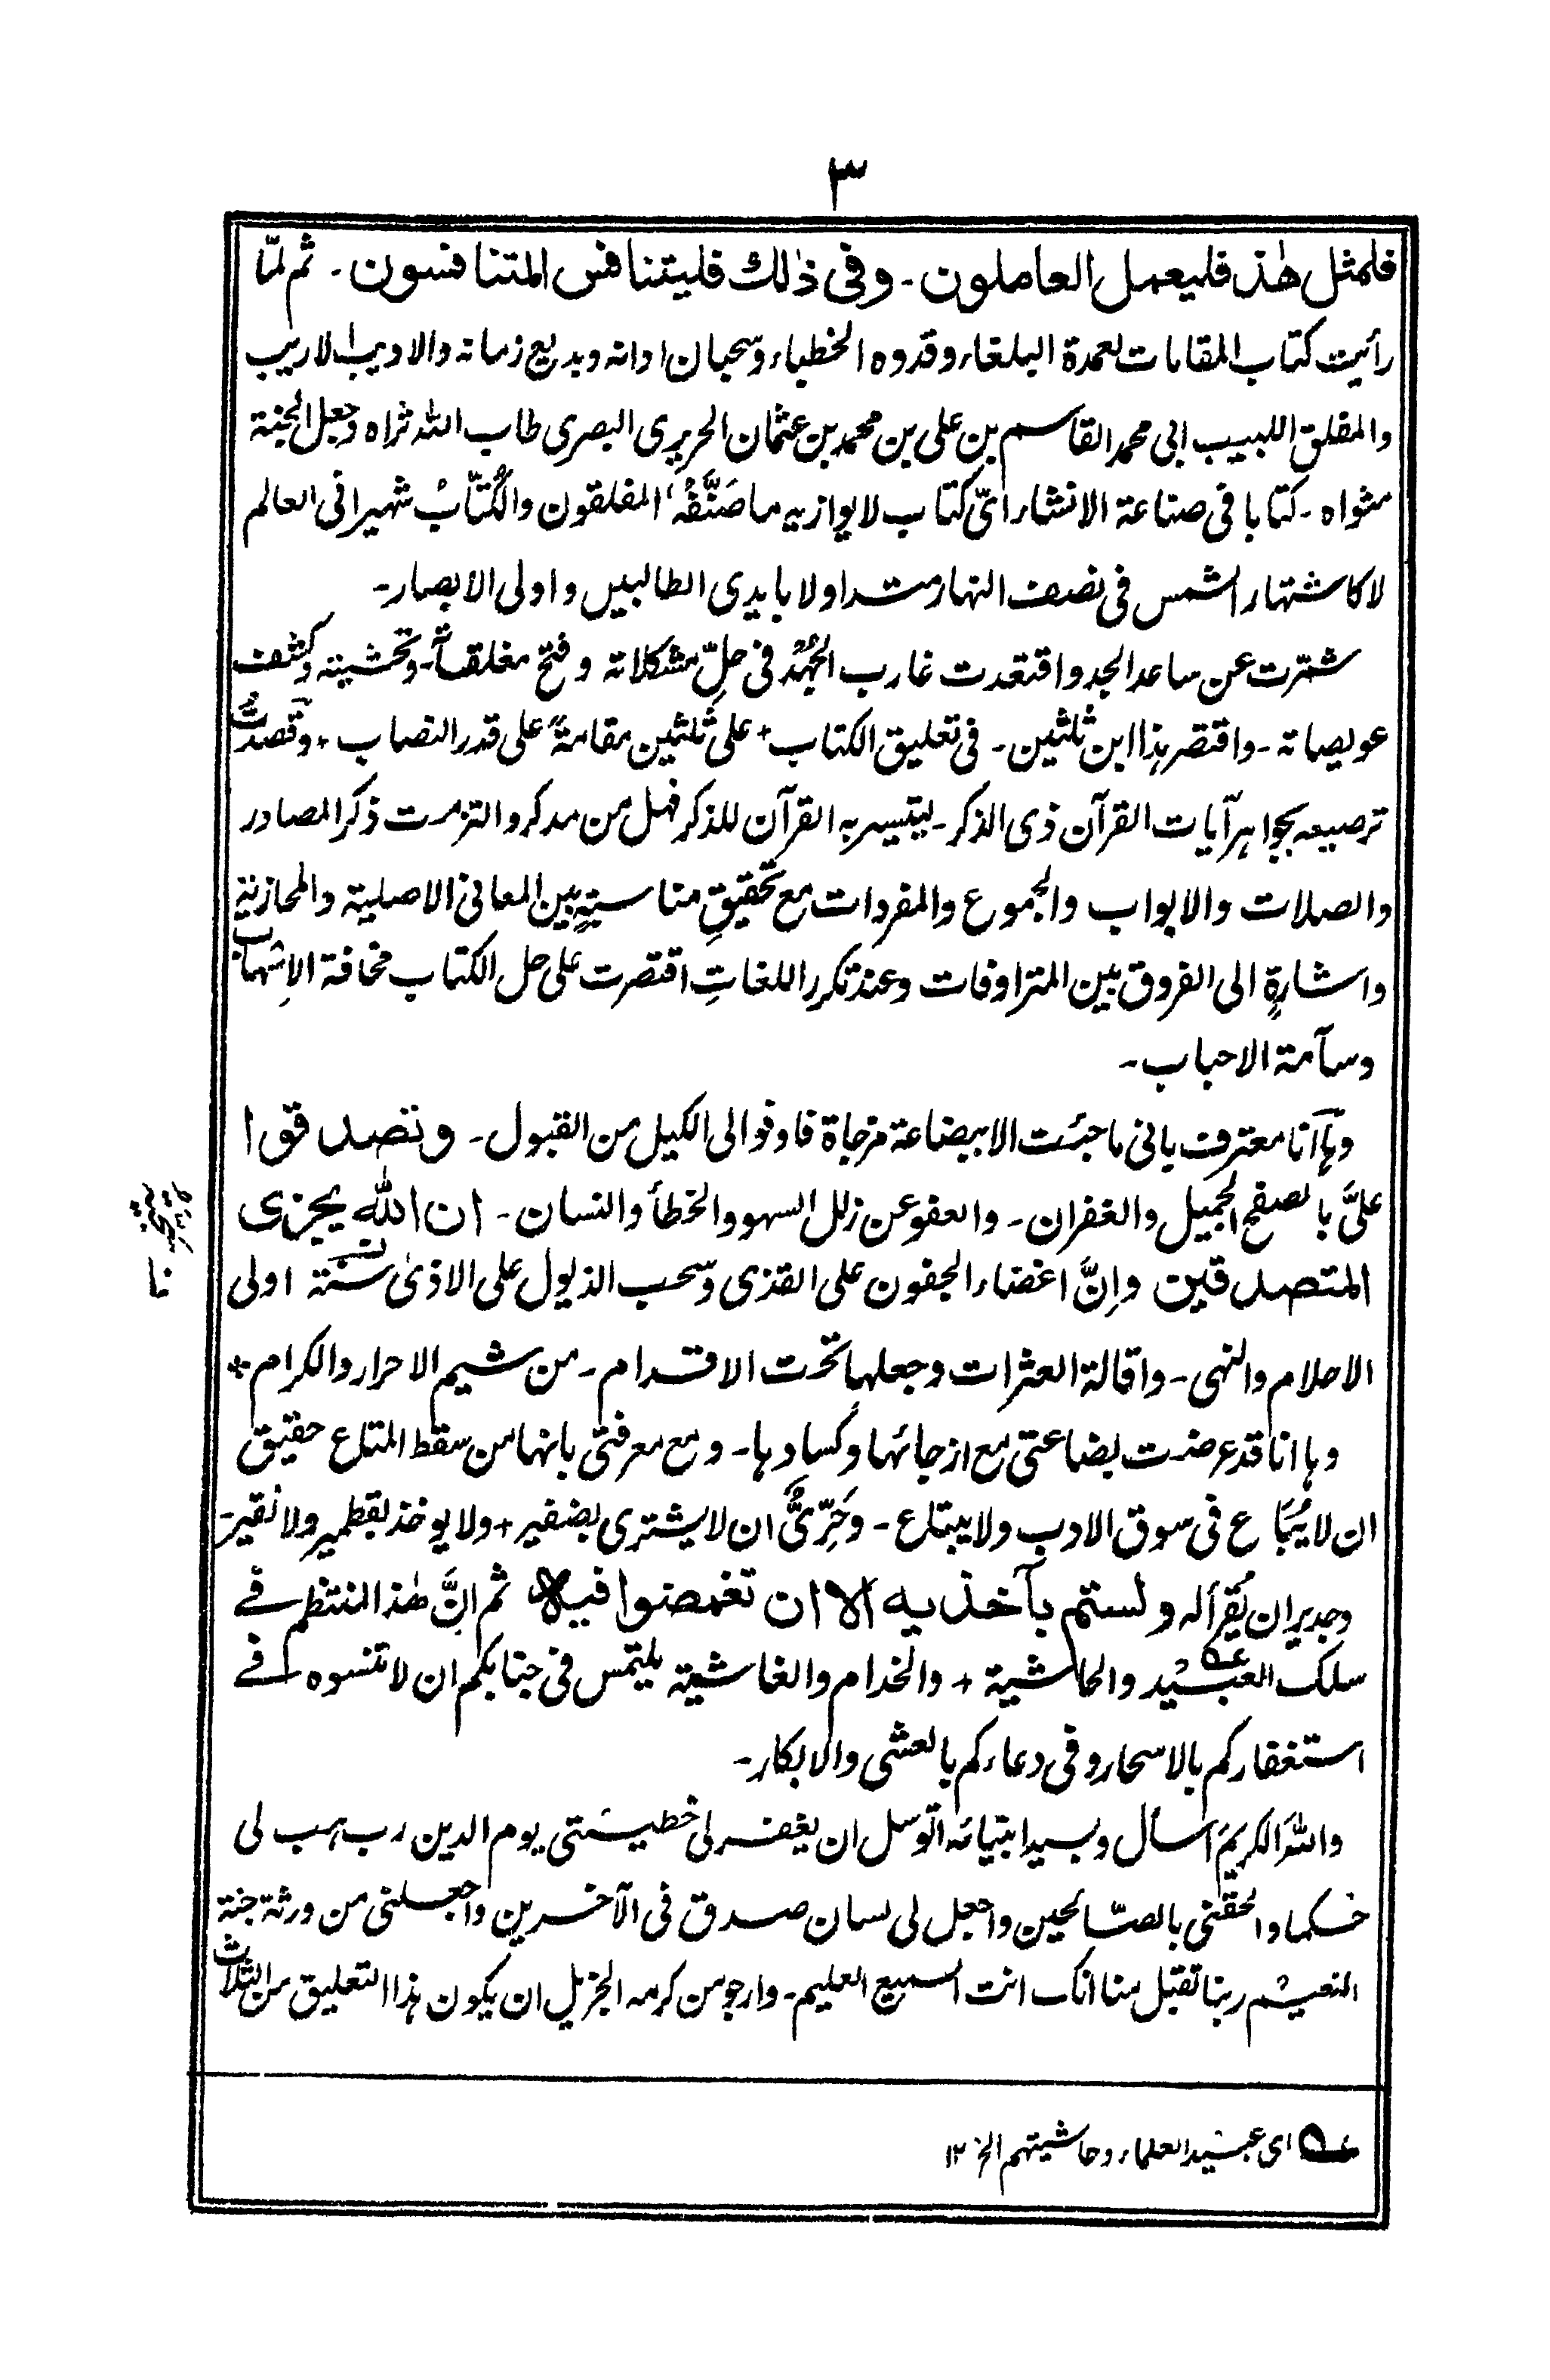 ٣
فلمثل هٰذ فليعمل العاملون ۔ وفى ذٰلك فليتنافس المتنافسون ۔ ثم لمّا
رأئيت كتاب المقامات لعمدة البلغاء وقدوه الخطباء وسحبان اوانه وبديع زمانه والاديب الاريب
والمفلق اللبيب ابى محمد القاسم بن على بن محمد بن عثمان الحريرى البصرى طاب الله ثراه وجعل الجنة
مثواه ۔ كتابا فى صناعة الانشاء اىّ كتاب لا يوازيه ما صَنَّفَهُ المفلقون والكُتّابُ شهيرا فى العالم
لا كاشتهار الشمس فى نصف النهار متداولا بايدى الطالبين و اولى الابصار ۔
شمّرت عن ساعد الجد واقتعدت غارب الجُهُد فى حلِّ مشكلاته و فتح مغلقاته ۔ وتحشيته وكشف
عويصاته ۔ واقتصر هذا ابن ثلٰثين ۔ فى تعليق الكتاب + على ثلٰثين مقامةً على قدر النصاب + وقصدتُ
ترصيعه بجواهر آيات القرآن ذى الذكر ۔ ليتيسر به القرآن للذكر فهل من مدكر والتزمت ذكر المصادر
والصلات والابواب والجموع والمفردات مع تحقيقِ مناسبتهٍ بين المعانى الاصلية والمجازية
واشارةٍ الى الفروق بين المترادفات وعند تكرر اللغاتِ اقتصرت على حل الكتاب مخافة الاِسْهاب
وسآمة الاحباب ۔
وهآ انا معترف بانى ما جئت الا ببضاعة مزجاة فاوفوا لى الكيل من القبول ۔ وتصدقوا
علىَّ بالصفح الجميل والغفران ۔ والعفو عن زلل السهو والخطأ والنسان ۔ ان الله يجزى
المتصدقين وانَّ اغضاء الجفون على القذى وسحب الذيول على الاذىٰ سنة اولى
الاحلام والنهى ۔ واقالة العثرات وجعلها تحت الاقدام ۔ من شيم الاحرار والكرام +
وها انا قد عرضت بضاعتى مع ازجائها وكسادها ۔ و مع معرفتى بانها من سقط المتاع حقيق
ان لا يُبَاع فى سوق الادب ولا يبتاع ۔ وحَرِىٌّ ان لا يشترى بضفير + ولا يوخذ بقطمير ولا نقير ۔
وجدير ان يُقرأ له ولستم بآخذيه الا ان تغمضوا فيه ثم انَّ هٰذا المنتظم فے
سلك العبيد والحاشية + والخدام والغاشية يلتمس فى جنابكم ان لا تنسوه فے
استغفاركم بالاسحار وفى دعاءكم بالعشى والابكار ۔
واللّٰهَ الكريمَ اسأل وبسيد انبيائه اتوسل ان يغفر لى خطيئتى يوم الدين رب هب لى
حكما والحقنى بالصّالحين واجعل لى لسان صدق فى الآخرين واجعلنى من ورثة جنة
النعيم ربنا تقبل منا انك انت السميع العليم ۔ وارجو من كرمه الجزيل ان يكون هذا التعليق من الثلاث
عه اى عبيد العلماء وحاشيتهم الخ ۱۲